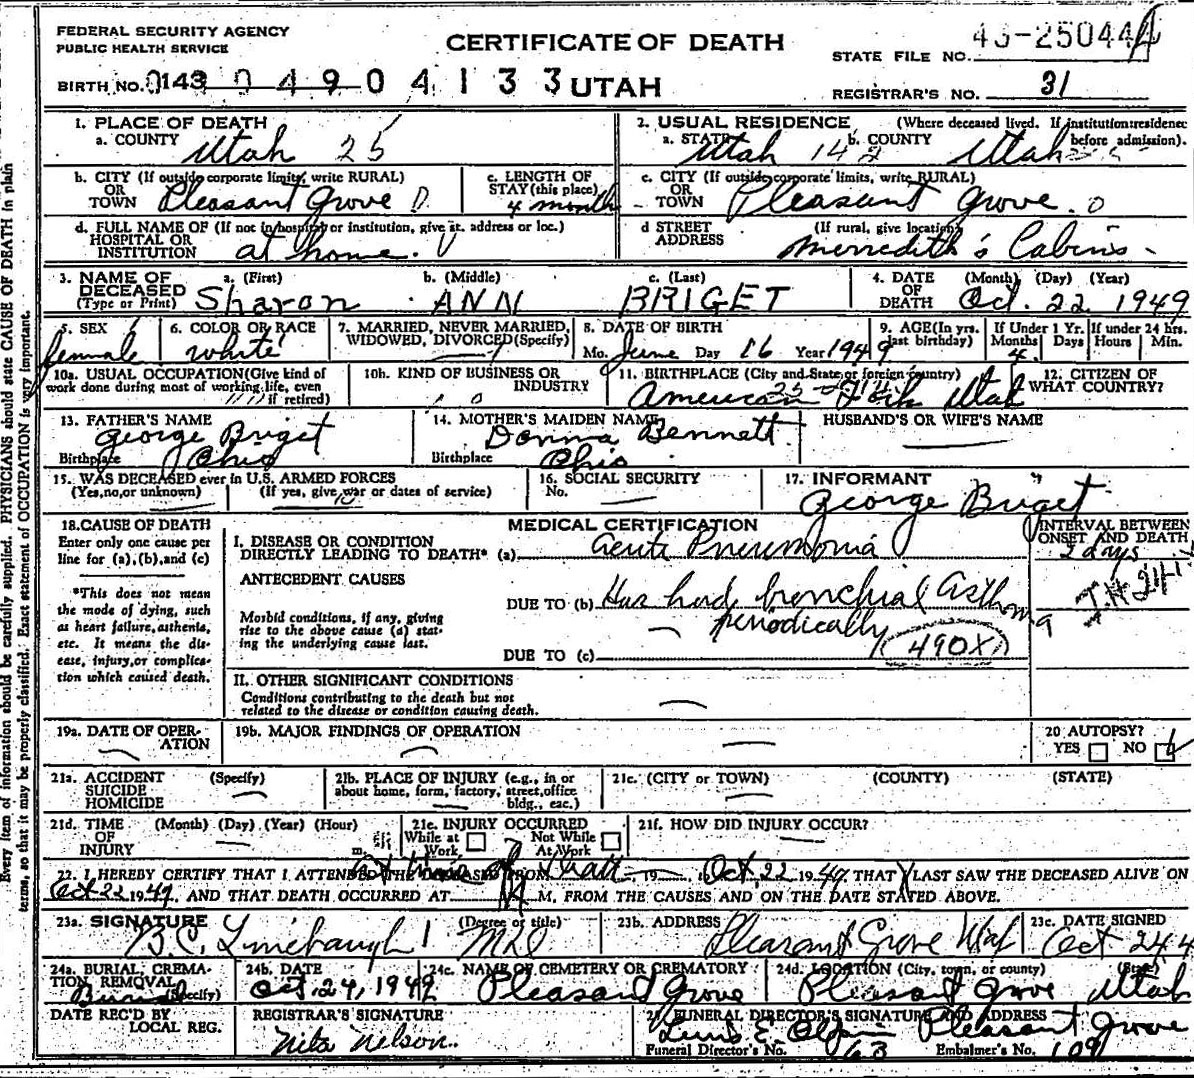 FEDERAL SECURITY AGENCY
PUBLIC HEALTH SERVICE
CERTIFICATE OF DEATH
STATE FILE NO.
BIRTH NO. 0143 0 4 9 0 4 1 3 3 UTAH
REGISTRAR'S NO. 31
1. PLACE OF DEATH
a. COUNTY Utah 25
2. USUAL RESIDENCE (Where deceased lived. If institution: residence before admission).
a. STATE Utah 142 b. COUNTY Utah
b. CITY (If outside corporate limits, write RURAL)
OR
TOWN Pleasant Grove
c. LENGTH OF
STAY (this place)
4 months
c. CITY (If outside corporate limits, write RURAL)
OR
TOWN Pleasant Grove. 0
d. FULL NAME OF (If not in hospital or institution, give st. address or loc.)
HOSPITAL OR
INSTITUTION at home.
d STREET (If rural, give location)
ADDRESS Meredith's Cabins
3. NAME OF DECEASED
(Type or Print)
a. (First) Sharon
b. (Middle) ANN
c. (Last) BRIGET
4. DATE OF DEATH (Month) (Day) (Year)
Oct. 22 1949
5. SEX
female
6. COLOR OR RACE
white
7. MARRIED, NEVER MARRIED, WIDOWED, DIVORCED (Specify)
8. DATE OF BIRTH
Mo. June Day 16 Year 1949
9. AGE (In yrs. last birthday)
If Under 1 Yr. Months Days
4
If under 24 hrs. Hours Min.
10a. USUAL OCCUPATION (Give kind of
work done during most of working life, even
if retired)
10b. KIND OF BUSINESS OR
INDUSTRY
11. BIRTHPLACE (City and State or foreign country)
American Fork Utah
12. CITIZEN OF
WHAT COUNTRY?
13. FATHER'S NAME
George Briget
Birthplace Ohio
14. MOTHER'S MAIDEN NAME
Donna Bennett
Birthplace Ohio
HUSBAND'S OR WIFE'S NAME
15. WAS DECEASED ever in U.S. ARMED FORCES
(Yes, no, or unknown) (If yes, give war or dates of service)
16. SOCIAL SECURITY
No.
17. INFORMANT
George Briget
18. CAUSE OF DEATH
Enter only one cause per
line for (a), (b), and (c)
*This does not mean
the mode of dying, such
as heart failure, asthenia,
etc. It means the dis-
ease, injury, or complica-
tion which caused death.
MEDICAL CERTIFICATION
I. DISEASE OR CONDITION
DIRECTLY LEADING TO DEATH* (a) acute Pneumonia
INTERVAL BETWEEN
ONSET AND DEATH
2 days
ANTECEDENT CAUSES
DUE TO (b) Has had bronchial Asthma
periodically
Morbid conditions, if any, giving
rise to the above cause (a) stat-
ing the underlying cause last.
DUE TO (c) 490X
II. OTHER SIGNIFICANT CONDITIONS
Conditions contributing to the death but not
related to the disease or condition causing death.
19a. DATE OF OPER-
ATION
19b. MAJOR FINDINGS OF OPERATION
20 AUTOPSY?
YES NO
21a. ACCIDENT (Specify)
SUICIDE
HOMICIDE
21b. PLACE OF INJURY (e.g., in or
about home, form, factory, street, office
bldg., eac.)
21c. (CITY or TOWN) (COUNTY) (STATE)
21d. TIME (Month) (Day) (Year) (Hour)
OF
INJURY m.
21e. INJURY OCCURRED
While at Work Not While At Work
21f. HOW DID INJURY OCCUR?
22. I HEREBY CERTIFY THAT I ATTENDED THE DECEASED FROM 19 Oct. 22 1949, THAT I LAST SAW THE DECEASED ALIVE ON
at time of death
Oct 22 1949, AND THAT DEATH OCCURRED AT M, FROM THE CAUSES AND ON THE DATE STATED ABOVE.
23a. SIGNATURE (Degree or title)
B.C. Linebaugh MD
23b. ADDRESS
Pleasant Grove Utah
23c. DATE SIGNED
Oct 24 4
24a. BURIAL, CREMA-
TION, REMOVAL
(Specify) Burial
24b. DATE
Oct. 24, 1949
24c. NAME OF CEMETERY OR CREMATORY
Pleasant Grove
24d. LOCATION (City, town, or county) (State)
Pleasant Grove Utah
DATE REC'D BY
LOCAL REG.
REGISTRAR'S SIGNATURE
Nita Nelson
25. FUNERAL DIRECTOR'S SIGNATURE AND ADDRESS
Pleasant Grove
Funeral Director's No. 63 Embalmer's No. 109
Every item of information should be carefully supplied. PHYSICIANS should state CAUSE OF DEATH in plain
terms, so that it may be properly classified. Exact statement of OCCUPATION is very important.